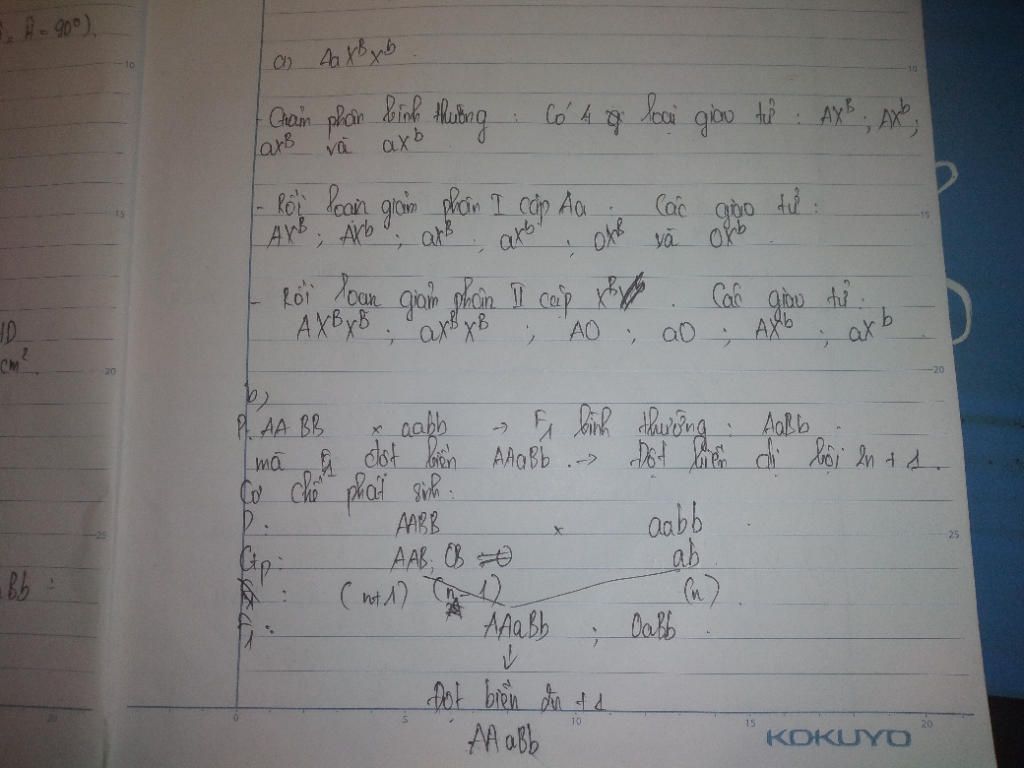 Â = 90°).
a) AaX^BX^b.
- Giảm phân bình thường : Có 4 loại giao tử : AX^B ; AX^b ;
aX^B và aX^b
- Rối loạn giảm phân I cặp Aa. Các giao tử :
AX^B ; AX^b ; aX^B ; aX^b ; OX^B và OX^b
- Rối loạn giảm phân II cặp X^B. Các giao tử :
AX^BX^B ; aX^BX^B ; AO ; aO ; AX^b ; aX^b
b)
P. AABB x aabb → F1 bình thường : AaBb.
mà F1 đột biến AAaBb. → Đột biến dị bội 2n + 1.
Cơ chế phát sinh :
P : AABB x aabb
Gp : AAB, OB ab
: (n+1) (n - 1) (n)
F1 : AAaBb ; OaBb.
↓
Đột biến 2n + 1
AAaBb
cm².
aBb :
10
15
20
25
10
15
20
25
20
0
5
10
15
20
KOKUYO